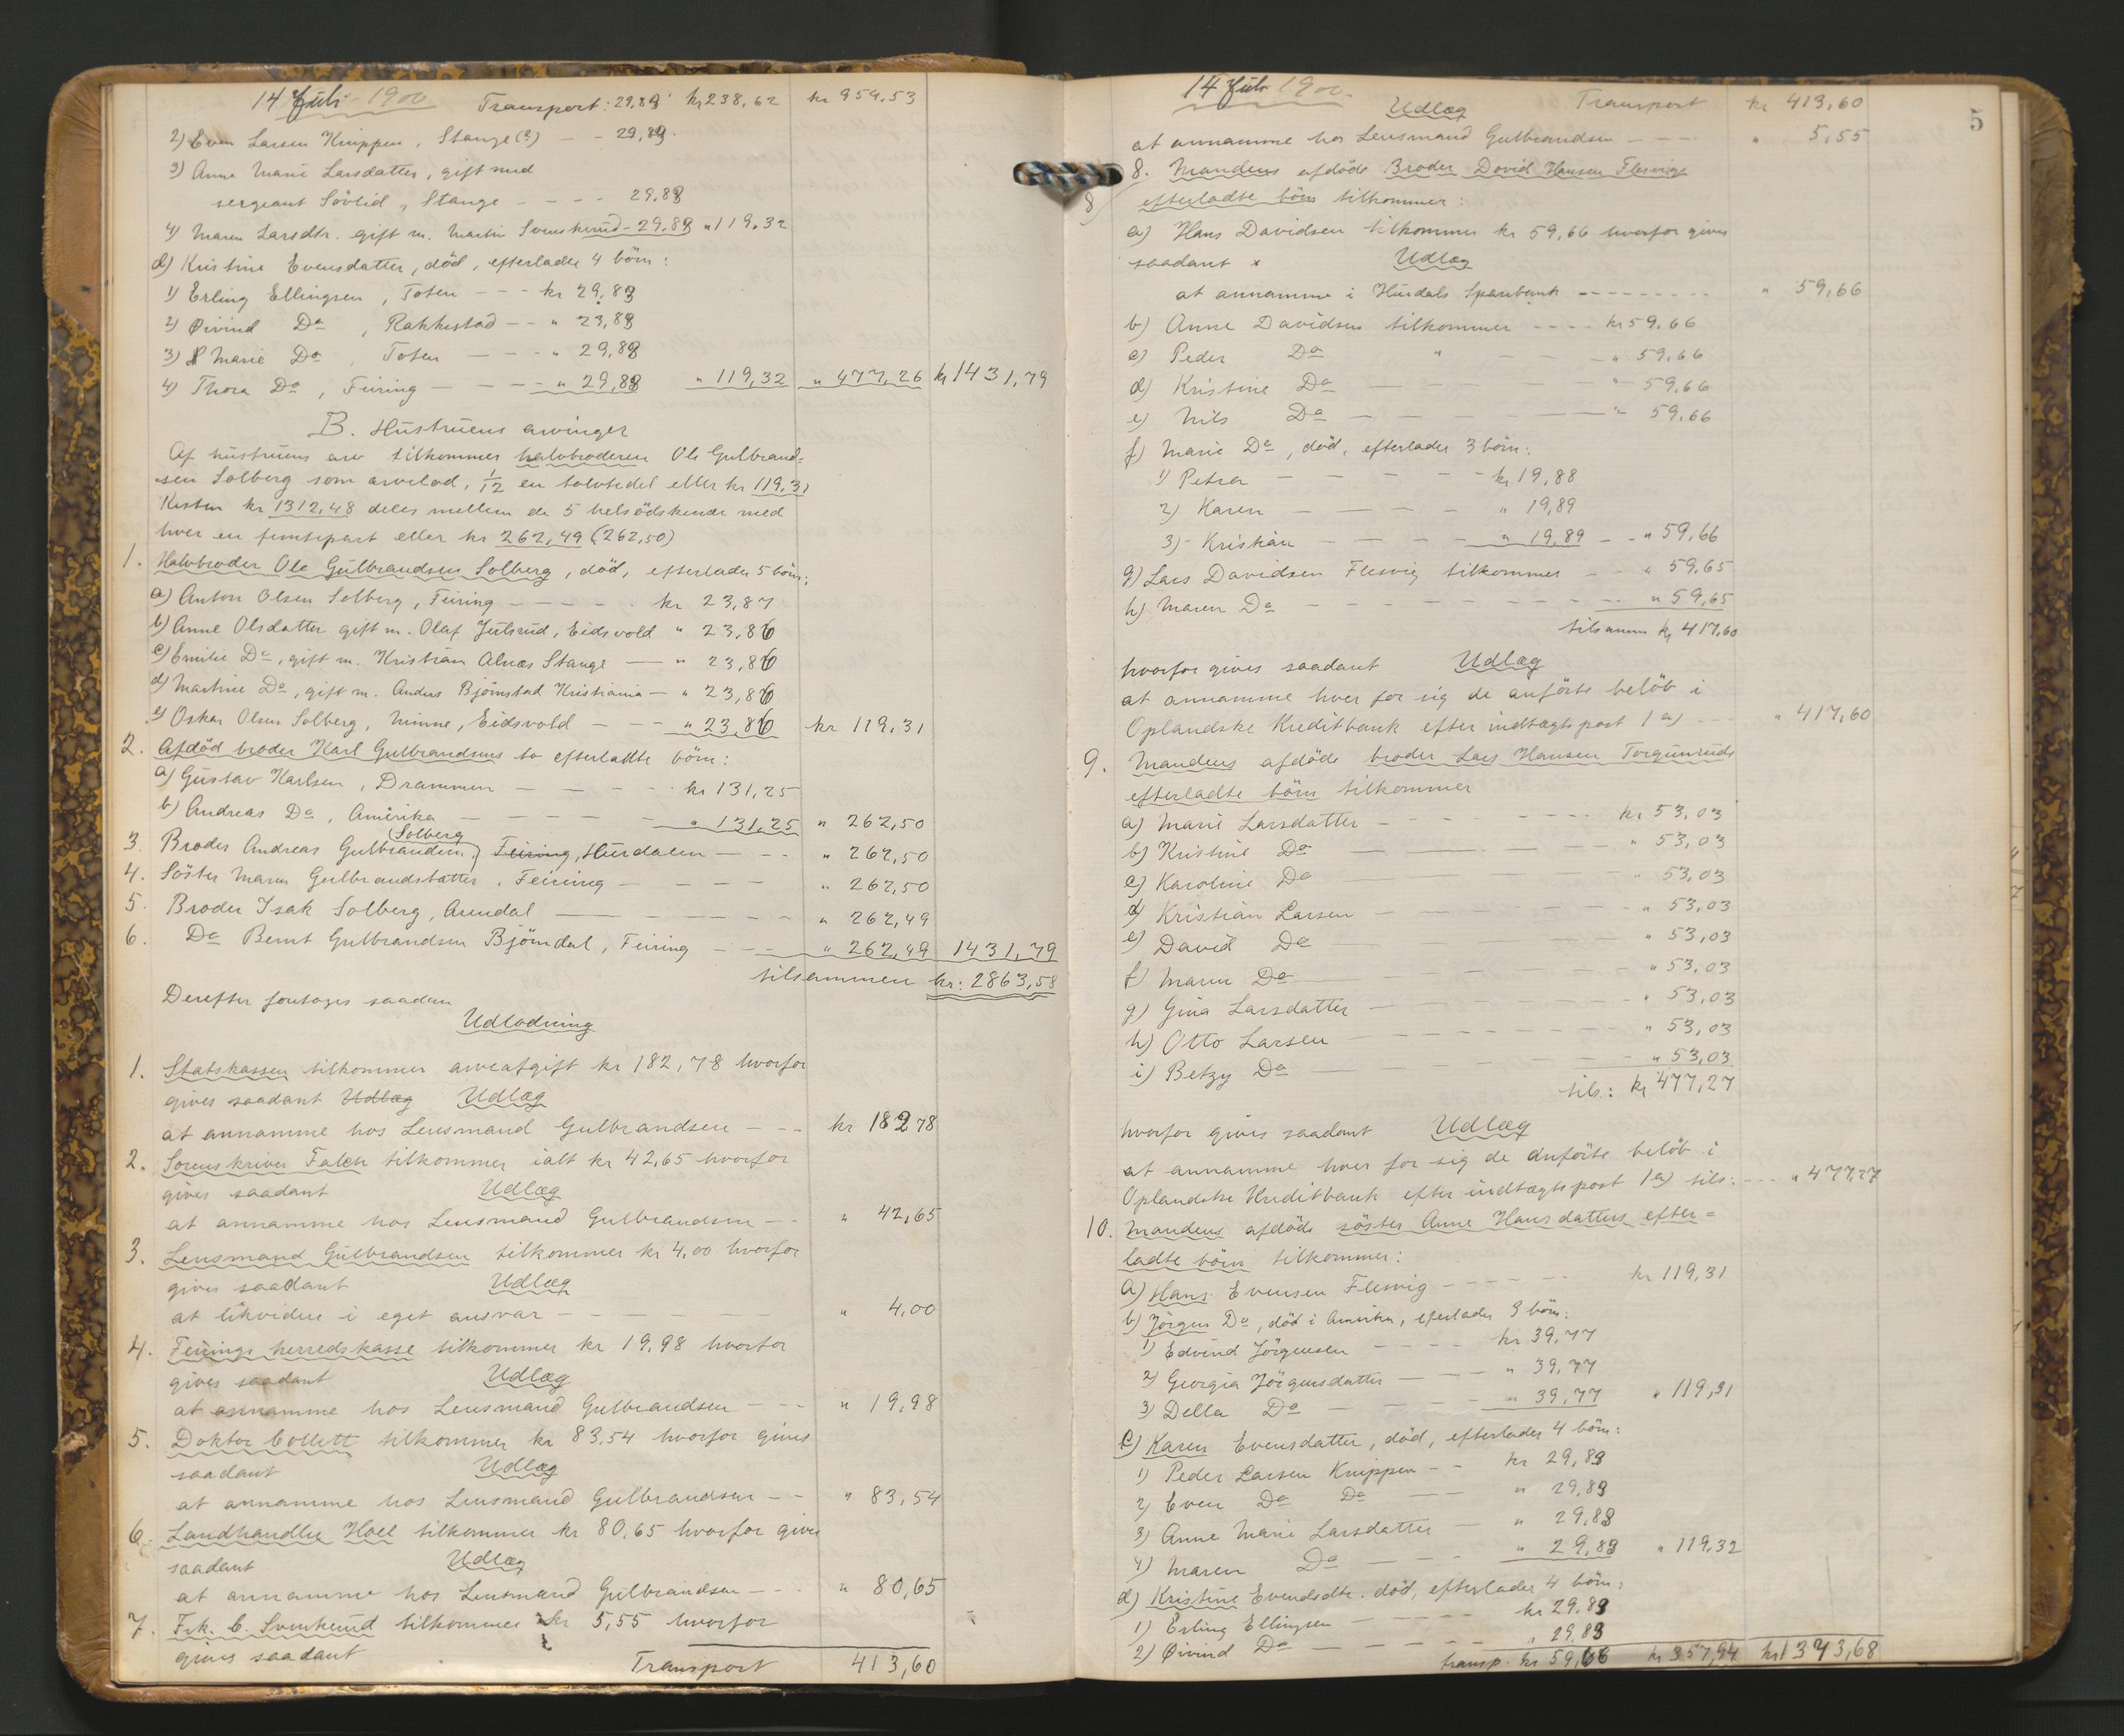 14 Juli 1900 Transport: 29,83 kr 238,62 kr 954,53
2) Even Larsen Knippen, Stange (?) — - 29,83
3) Anne Marie Larsdatter, gift med
sergeant Sövlid, Stange - - - - 29,83
4) Maren Larsdtr. gift m. Martin Svenskerud - 29,83 " 119,32
d) Kristine Evensdatter, död, efterlader 4 börn:
1) Erling Ellingsen, Toten - - - kr 29,83
2) Øivind Do, Rakkestad - - " 29,83
3) Marie Do, Toten - - - " 29,83
4) Thora Do, Feiring - - - - " 29,83 " 119,32 " 477,26 kr 1431,79
B. Hustruens arvinger
Af hustruens arv tilkommer halvbroderen Ole Gulbrand=
sen Solberg som arvelod, 1/12 en tolvtedel eller kr 119,31
Resten kr 1312,48 deles mellem de 5 helsödskende med
hver en femtepart eller kr 262,49 (262,50)
1. Halvbroder Ole Gulbrandsen Solberg, död, efterlader 5 börn:
a) Anton Olsen Solberg, Feiring - - - - - kr 23,87
b) Anne Olsdatter gift m. Olaf Julsrud, Eidsvold " 23,86
c) Emilie Do, gift m. Kristian Alnæs Stange — " 23,86
d) Martine Do, gift m. Anders Björnstad Kristiania — " 23,86
e) Oskar Olsen Solberg, Minne, Eidsvold - - - " 23,86 kr 119,31
2. Afdöd broder Karl Gulbrandsens to efterladte börn:
a) Gustav Karlsen, Drammen - - - - - kr 131,25
b) Andreas Do, Amerika - - - - - - " 131,25 " 262,50
3. Broder Andreas Gulbrandsen Solberg, Feiring, Hurdalen - - - " 262,50
4. Söster Maren Gulbrandsdatter, Feiring - - - - " 262,50
5. Broder Isak Solberg, Arendal — - - - - - " 262,49
6. Do Bernt Gulbrandsen Björndal, Feiring - - - " 262,49 1431,79
tilsammen kr: 2863,58
Derefter foretages saadan
Udlodning
1. Statskassen tilkommer arveafgift kr 182,78 hvorfor
gives saadant Udlæg Udlæg
at annamme hos Lensmand Gulbrandsen - - - kr 182,78
2. Sorenskriver Falch tilkommer ialt kr 42,65 hvorfor
gives saadant Udlæg
at annamme hos Lensmand Gulbrandsen - - " 42,65
3. Lensmand Gulbrandsen tilkommer kr 4,00 hvorfor
gives saadant Udlæg
at likvidere i eget ansvar - - - - " 4,00
4. Feirings herredskasse tilkommer kr 19,98 hvorfor
gives saadant Udlæg
at annamme hos Lensmand Gulbrandsen - - - " 19,98
5. Doktor Collett tilkommer kr 83,54 hvorfor gives
saadant Udlæg
at annamme hos Lensmand Gulbrandsen - - " 83,54
6. Landhandler Hoel tilkommer kr 80,65 hvorfor gives
saadant Udlæg
at annamme hos Lensmand Gulbrandsen - - - " 80,65
7. Frk. C. Svenkerud tilkommer kr 5,55 hvorfor
gives saadant
Transport 413,60
14 Juli 1900. 5
Udlæg Transport kr 413,60
at annamme hos Lensmand Gulbrandsen - - - " 5,55
8. Mandens afdöde Broder David Hansen Flesvigs
8 efterladte börn tilkommer:
a) Hans Davidsen tilkommer kr 59,66 hvorfor gives
saadant Udlæg
at annamme i Hurdals Sparebank - - - - - - - - " 59,66
b) Anne Davidsen tilkommer - - - - kr 59,66
c) Peder Do " - - - " 59,66
d) Kristine Do - - - - " 59,66
e) Nils Do - - - - " 59,66
f) Marie Do, död, efterlader 3 börn:
1) Petra - - - - - kr 19,88
2) Karen - - - - - " 19,89
3) Kristian - - - - " 19,89 - - " 59,66
g) Lars Davidsen Flesvig tilkommer - - " 59,65
h) Maren Do - - - - - - - - " 59,65
tilsamm kr 417,60
hvorfor gives saadant Udlæg
at annamme hver for sig de anförte belöb i
Oplandske Kreditbank efter indtægtspost 1 a) - - - " 417,60
9. Mandens afdöde broder Lars Hansen Torgunruds
efterladte börn tilkommer
a) Marie Larsdatter - - - - - - kr 53,03
b) Kristine Do - - - - " 53,03
c) Karoline Do - - - - " 53,03
d) Kristian Larsen - - - - " 53,03
e) David Do - - - - " 53,03
f) Maren Do - - - - " 53,03
g) Gina Larsdatter - - - - " 53,03
h) Otto Larsen - - - - " 53,03
i) Betzy Do - - - - " 53,03
tils: kr 477,27
hvorfor gives saadant Udlæg
at annamme hver for sig de anförte belöb i
Oplandske Kreditbank efter indtægtspost 1 a) tils: - - - " 477,27
10. Mandens afdöde söster Anne Hansdatters efter=
ladte börn tilkommer:
a) Hans Evensen Flesvig - - - - - - kr 119,31
b) Jörgen Do, död i Amerika, efterlader 3 börn:
1) Edvind Jörgensen - - - - kr 39,77
2) Georgia Jörgensdatter - - - " 39,77
3) Della Do - - - - " 39,77 " 119,31
c) Karen Evensdatter, död, efterlader 4 börn:
1) Peder Larsen Knippen - - kr 29,83
2) Even Do Do - - " 29,83
3) Anne Marie Larsdatter - " 29,83
4) Maren Do - - - " 29,83 " 119,32
d) Kristine Evensdtr. död, efterlader 4 börn:
1) Erling Ellingsen - - - - kr 29,83
2) Øivind Do - - - - - " 29,83
transp. kr 59,66 kr 357,94 kr 1373,68